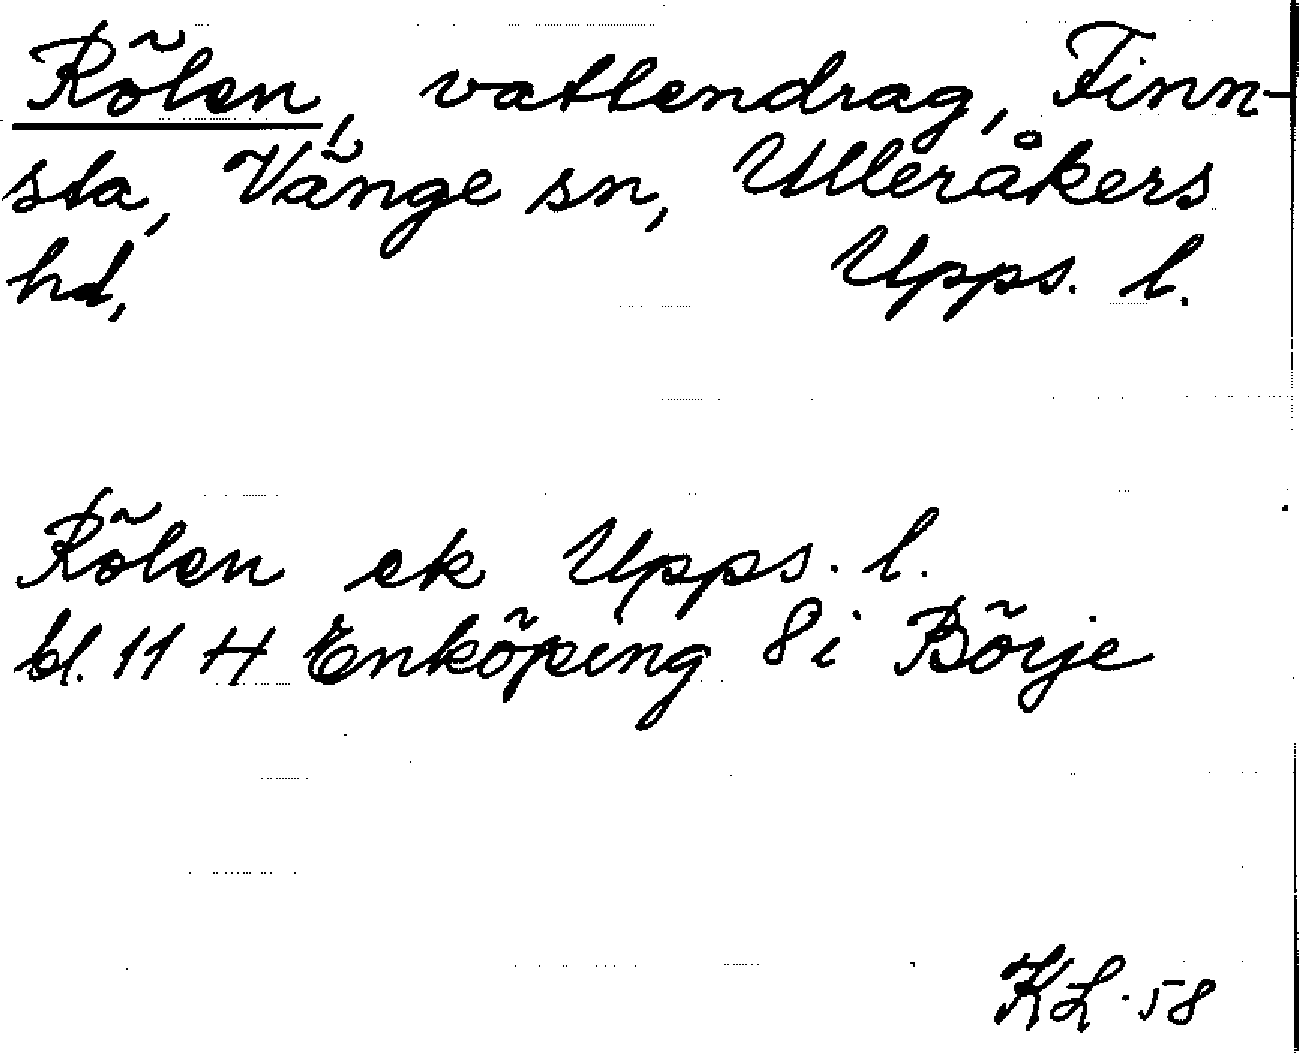 Rölen, vattendrag, Finn-
sta, Vänge sn, Ulleråkers
hd, Upps. l.
Rölen ek Upps. l.
bl. 11 H Enköping 8i Börje
KL. 58